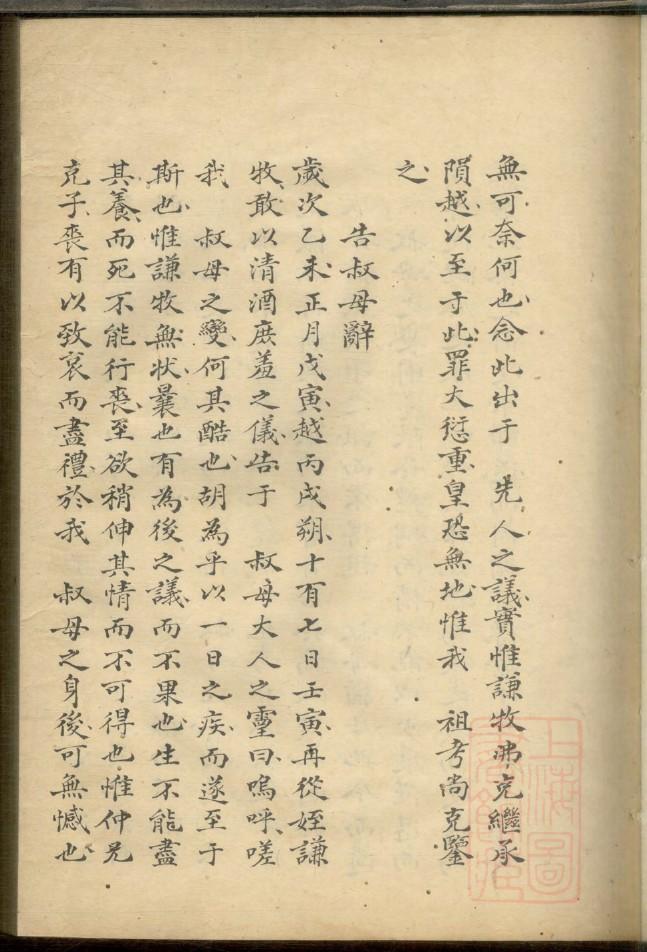 無可奈何也念此出于　先人之議實惟謙牧沸克繼承
隕越以至于此罪大愆重皇恐無地惟我　祖考尚克鑒
之
告叔母辭
歲次乙未正月戊寅越丙戌朔十有七日壬寅再從姪謙
牧敢以清酒庶羞之儀告于　叔母大人之靈曰嗚呼嗟
我　叔母之變何其酷也胡為乎以一日之疾而遂至于
斯也惟謙牧無状曩也有為後之議而不果也生不能盡
其養而死不能行喪至欲稍伸其情而不可得也惟仲兄
克子喪有以致哀而盡禮於我　叔母之身後可無憾也
上海圖書館藏